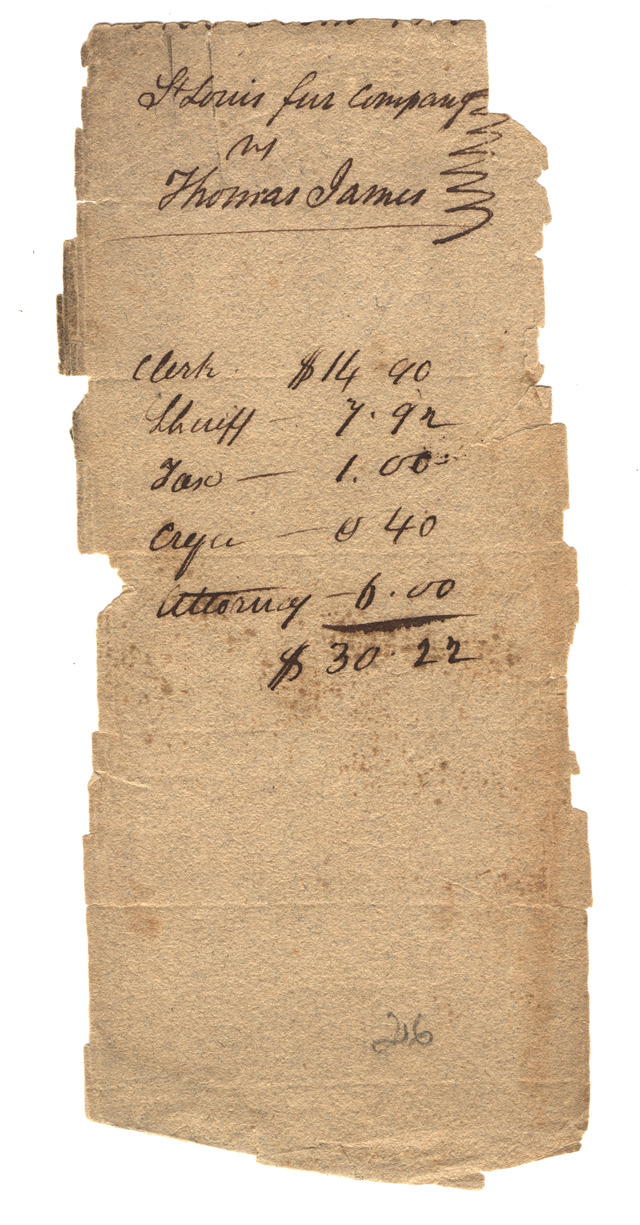 St Louis fur Company
vs
Thomas James
Clerk $14 90
Sheriff — 7. 92
Tax — 1. 00
Cryer — 0 40
Attorney — 6. 00
$ 30. 22
216